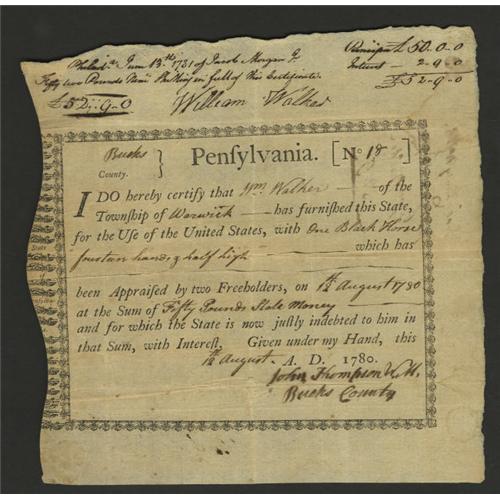 Philad.ᵃ June 13.th 1781 of Jacob Morgan Jr.
Fifty two Pounds Nine Shillings in full of this Certificate
£52..9..0
William Walker
Principal £ 50.0.0
Interest - 2.9.0
£52.9.0
Bucks
County.
Pensylvania. [No 18
I DO hereby certify that Wm. Walker of the
Township of Warwick has furnished this State,
for the Use of the United States, with One Black Horse
fourteen hands & half high which has
been Appraised by two Freeholders, on August 1780
at the Sum of Fifty Pounds State Money
and for which the State is now justly indebted to him in
that Sum, with Interest, Given under my Hand, this
August. A. D. 1780.
John Thompson
Bucks County